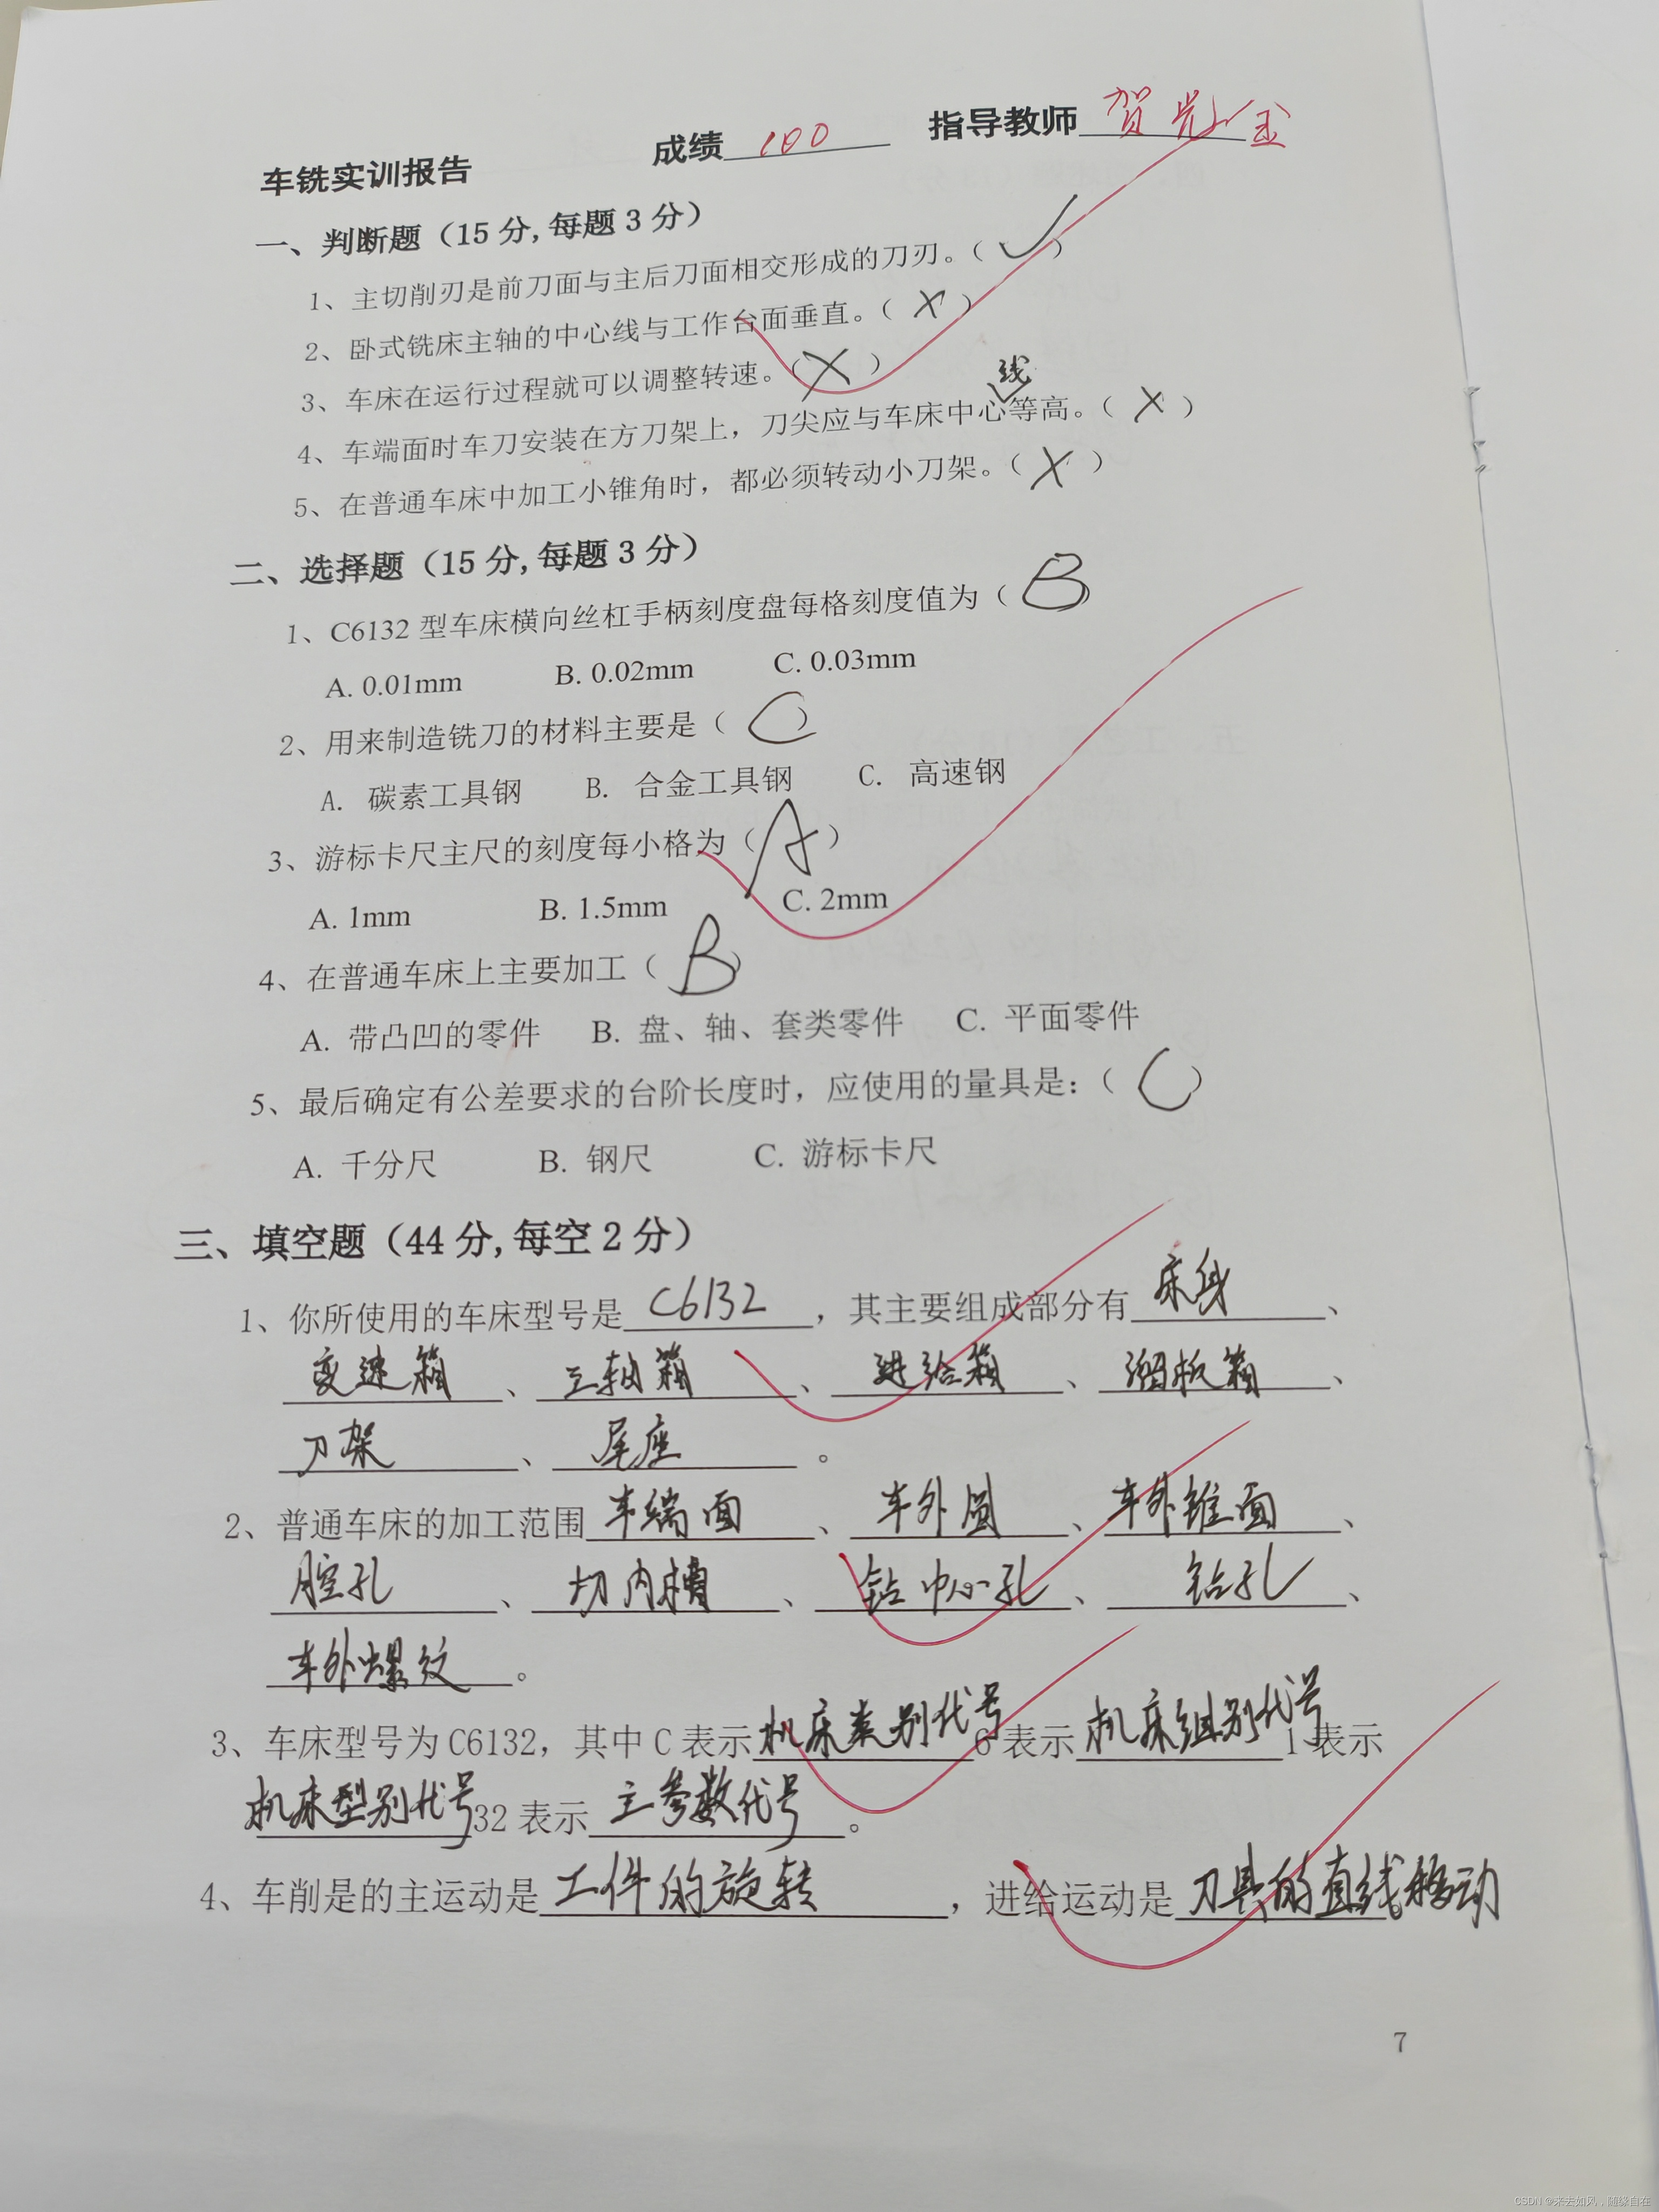 车铣实训报告 成绩 100 指导教师 贺
一、判断题（15分,每题3分）
1、主切削刃是前刀面与主后刀面相交形成的刀刃。（ ✓ ）
2、卧式铣床主轴的中心线与工作台面垂直。（ X ）
3、车床在运行过程就可以调整转速。（ X ）
线
4、车端面时车刀安装在方刀架上，刀尖应与车床中心等高。（ X ）
5、在普通车床中加工小锥角时，都必须转动小刀架。（ X ）
二、选择题（15分,每题3分）
1、C6132型车床横向丝杠手柄刻度盘每格刻度值为（ B ）
A. 0.01mm B. 0.02mm C. 0.03mm
2、用来制造铣刀的材料主要是（ C ）
A. 碳素工具钢 B. 合金工具钢 C. 高速钢
3、游标卡尺主尺的刻度每小格为（ A ）
A. 1mm B. 1.5mm C. 2mm
4、在普通车床上主要加工（ B ）
A. 带凸凹的零件 B. 盘、轴、套类零件 C. 平面零件
5、最后确定有公差要求的台阶长度时，应使用的量具是:（ C ）
A. 千分尺 B. 钢尺 C. 游标卡尺
三、填空题（44分,每空2分）
1、你所使用的车床型号是 C6132 ，其主要组成部分有 床身 、
变速箱 、 主轴箱 、 进给箱 、 溜板箱 、
刀架 、 尾座 。
2、普通车床的加工范围 车端面 、 车外圆 、 车外锥面 、
膛孔 、 切内槽 、 钻中心孔 、 钻孔 、
车外螺纹 。
3、车床型号为C6132，其中C表示 机床类别代号 6表示 机床组别代号 1表示
机床型别代号 32表示 主参数代号 。
4、车削是的主运动是 工件的旋转 ，进给运动是 刀具的直线移动 。
7
CSDN @来去如风，随缘自在